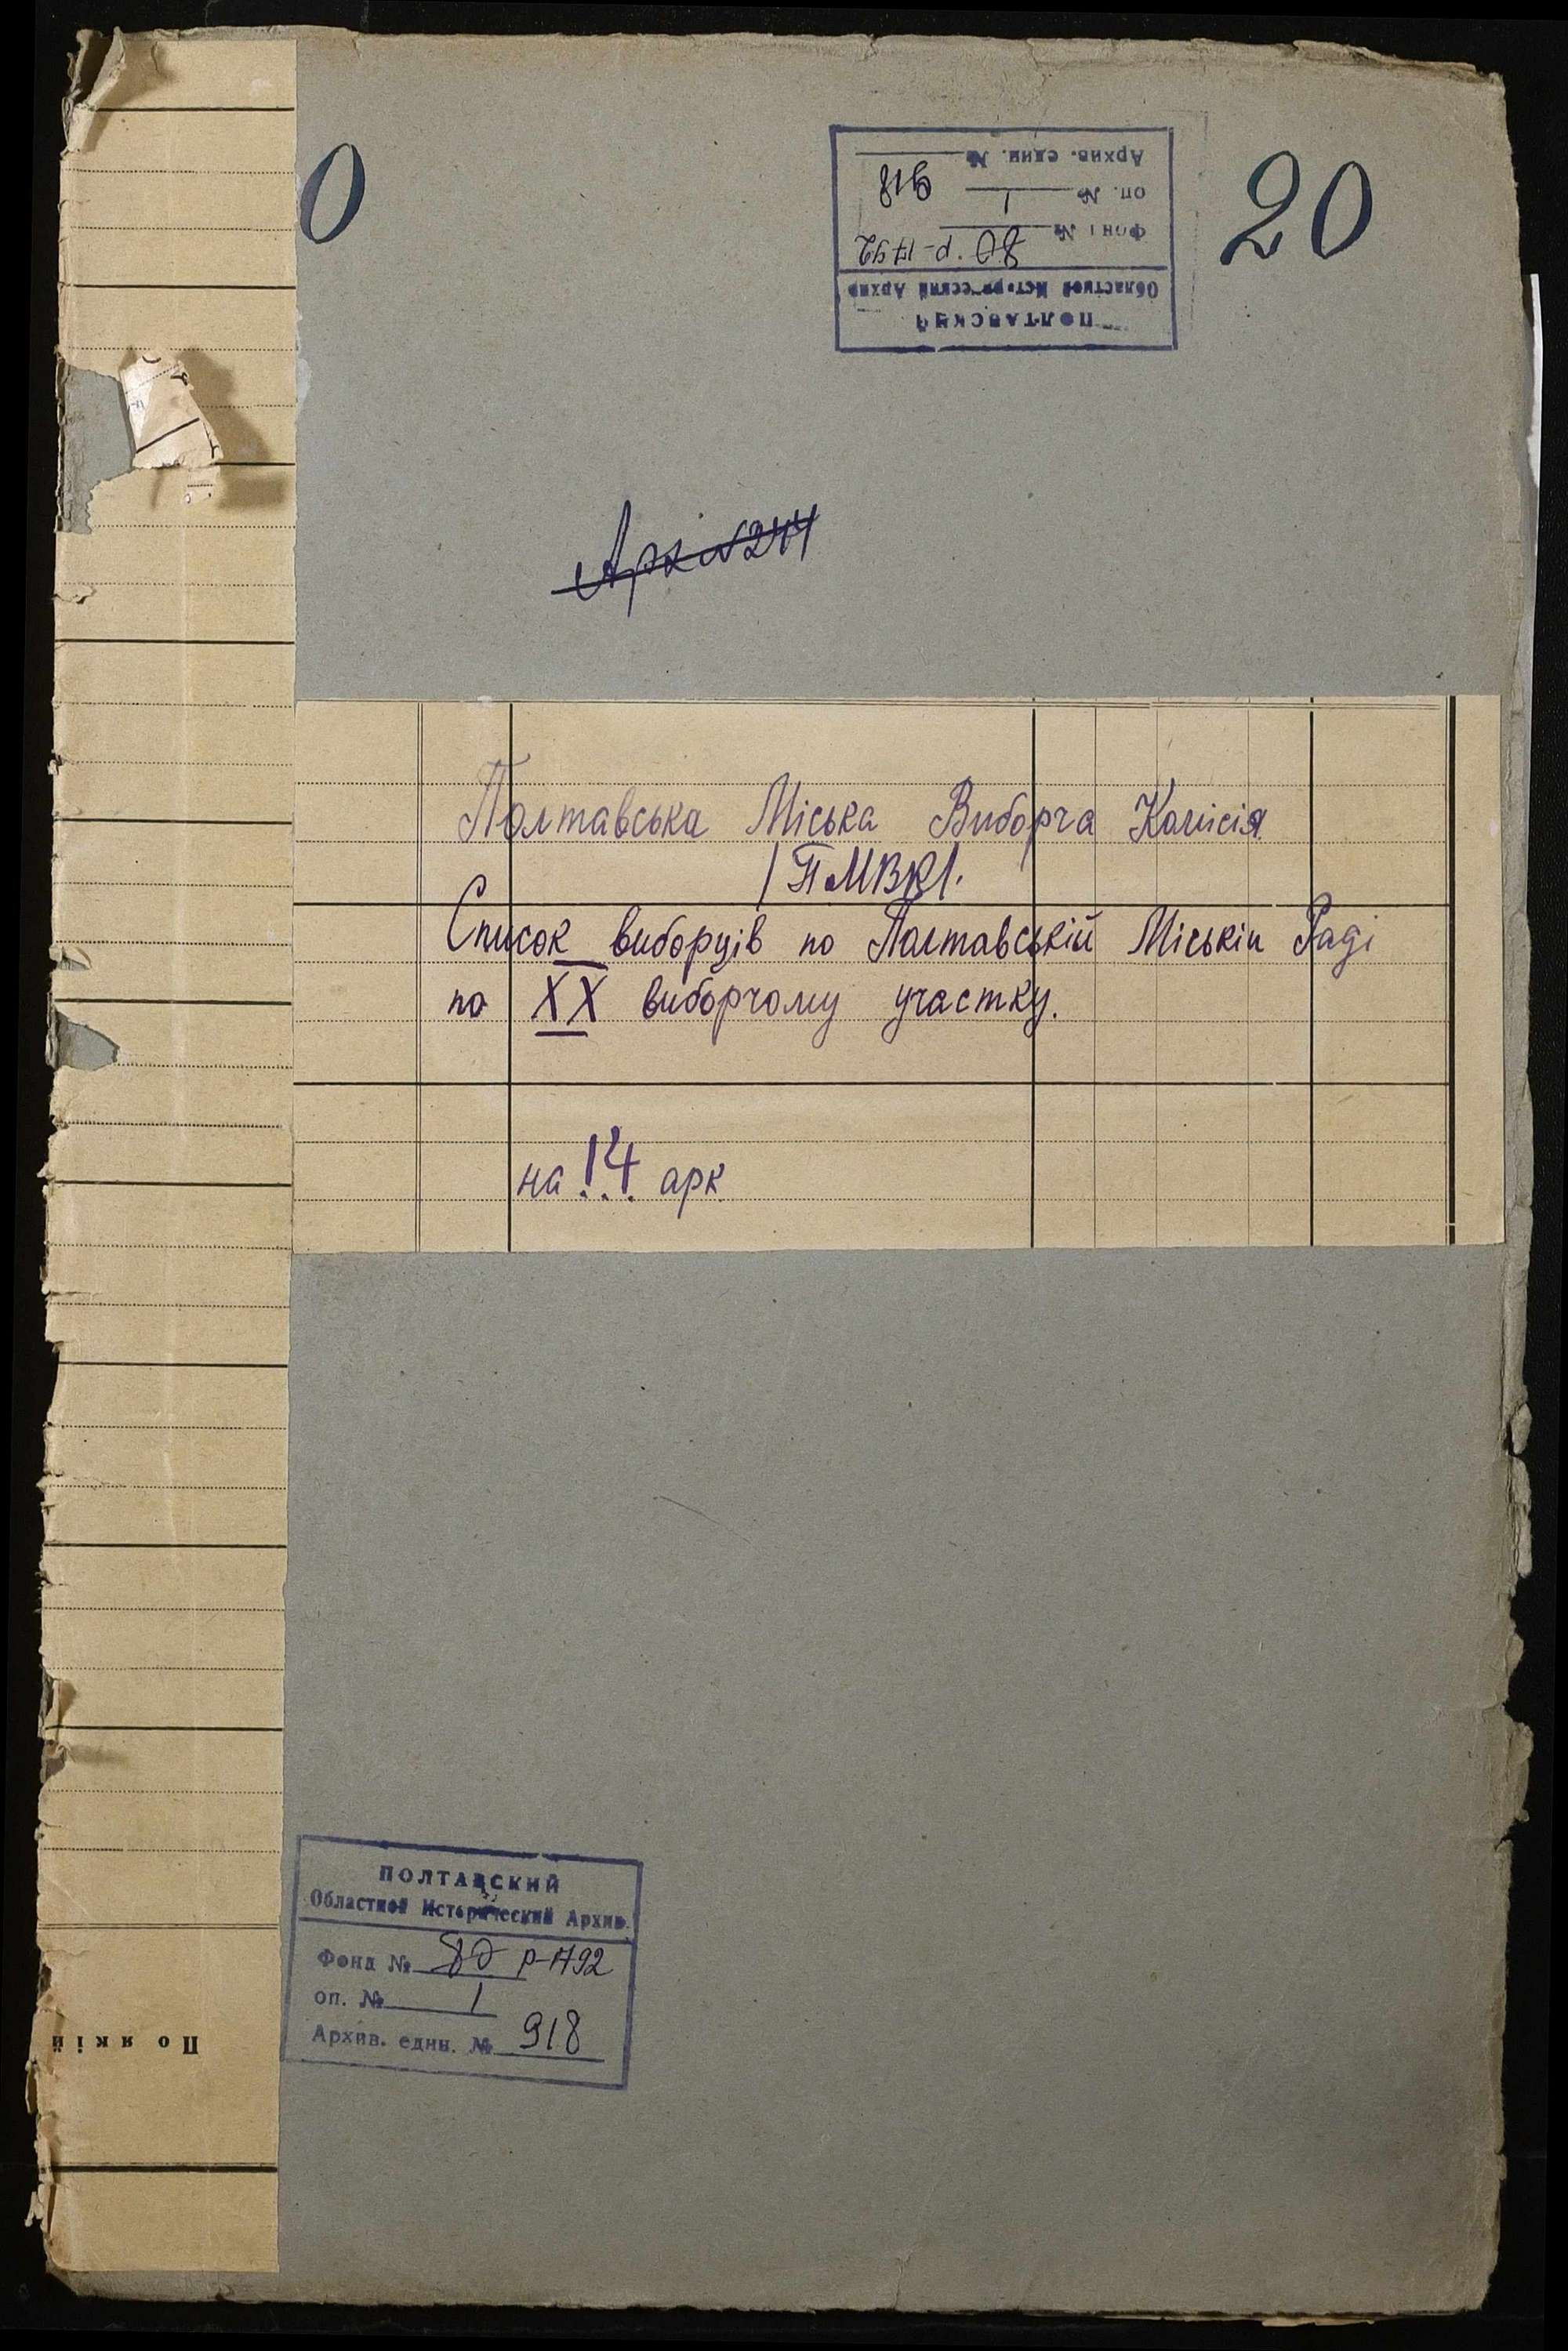 0
20
Архив. един. №
оп. № 1 918
Фонд № 80. р-1792
Областной Исторический Архив
ПОЛТАВСКИЙ
Арх №244
Полтавська Міська Виборча Комісія
/ПМВК/.
Список виборців по Полтавській Міській Раді
по XX виборчому участку.
на 14 арк
ПОЛТАВСКИЙ
Областной Исторический Архив
Фонд № 80 р-1792
оп. № 1
Архив. един. № 918
По якій